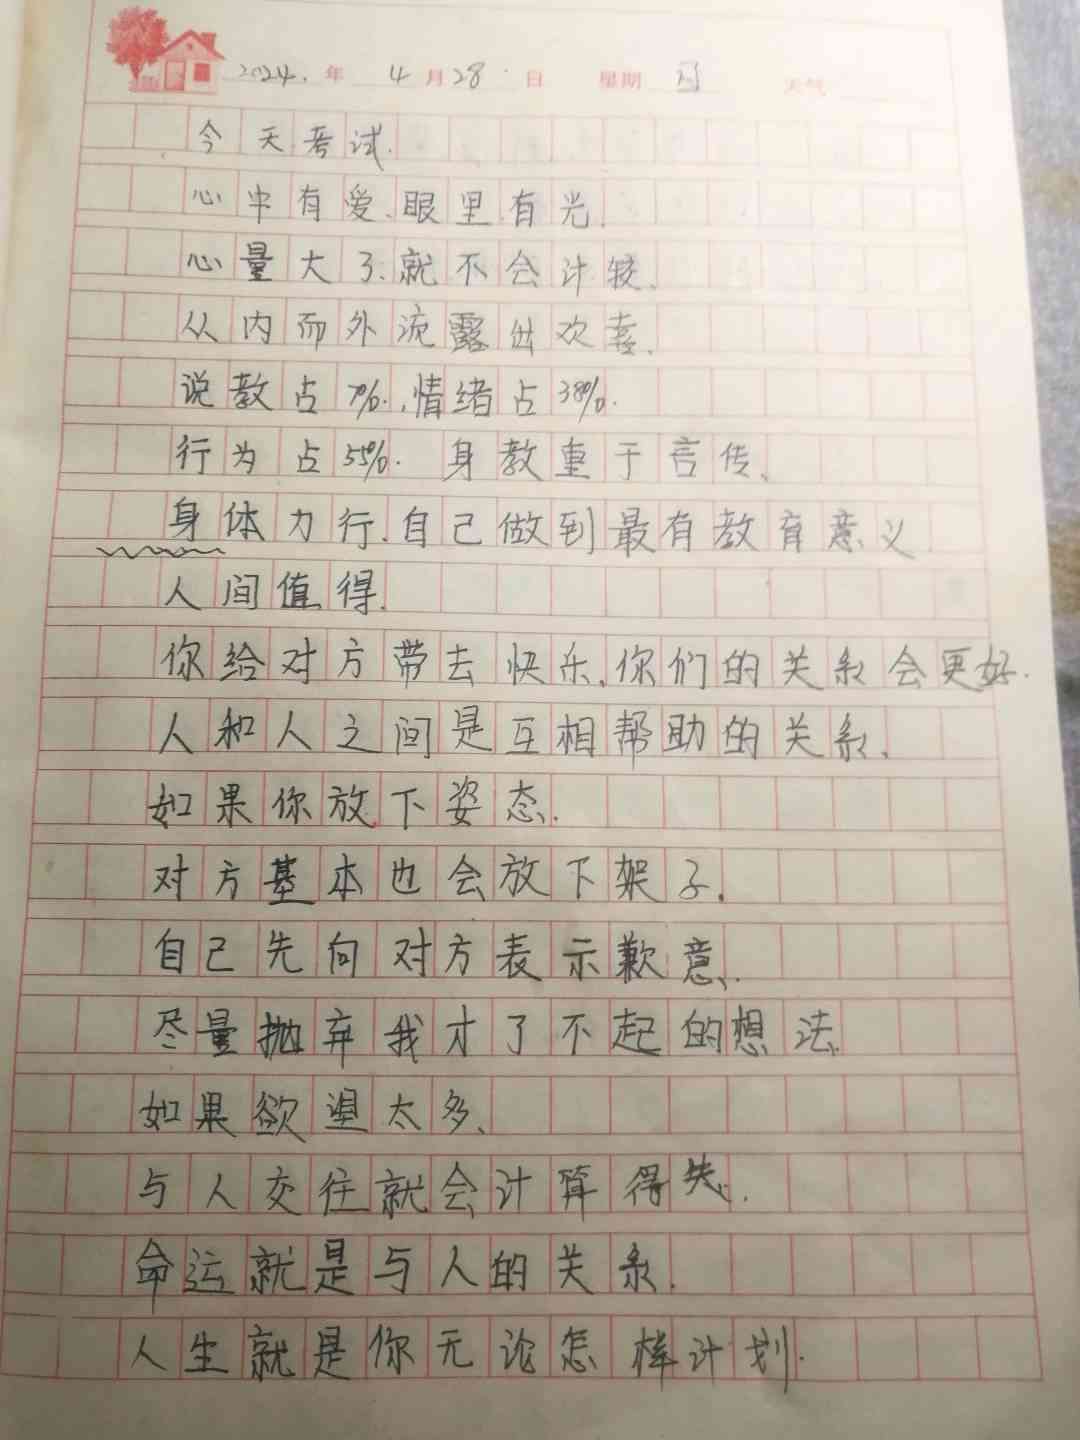 2024.年 4月28日 星期日 天气
今天考试.
心中有爱、眼里有光.
心量大了、就不会计较.
从内而外流露出欢喜.
说教占7%.,情绪占38%.
行为占55%. 身教重于言传、
身体力行.自己做到最有教育意义
人间值得.
你给对方带去快乐、你们的关系会更好.
人和人之间是互相帮助的关系、
如果你放下姿态.
对方基本也会放下架子.
自己先向对方表示歉意.
尽量抛弃我才了不起的想法.
如果欲望太多、
与人交往就会计算得失.
命运就是与人的关系.
人生就是你无论怎样计划.